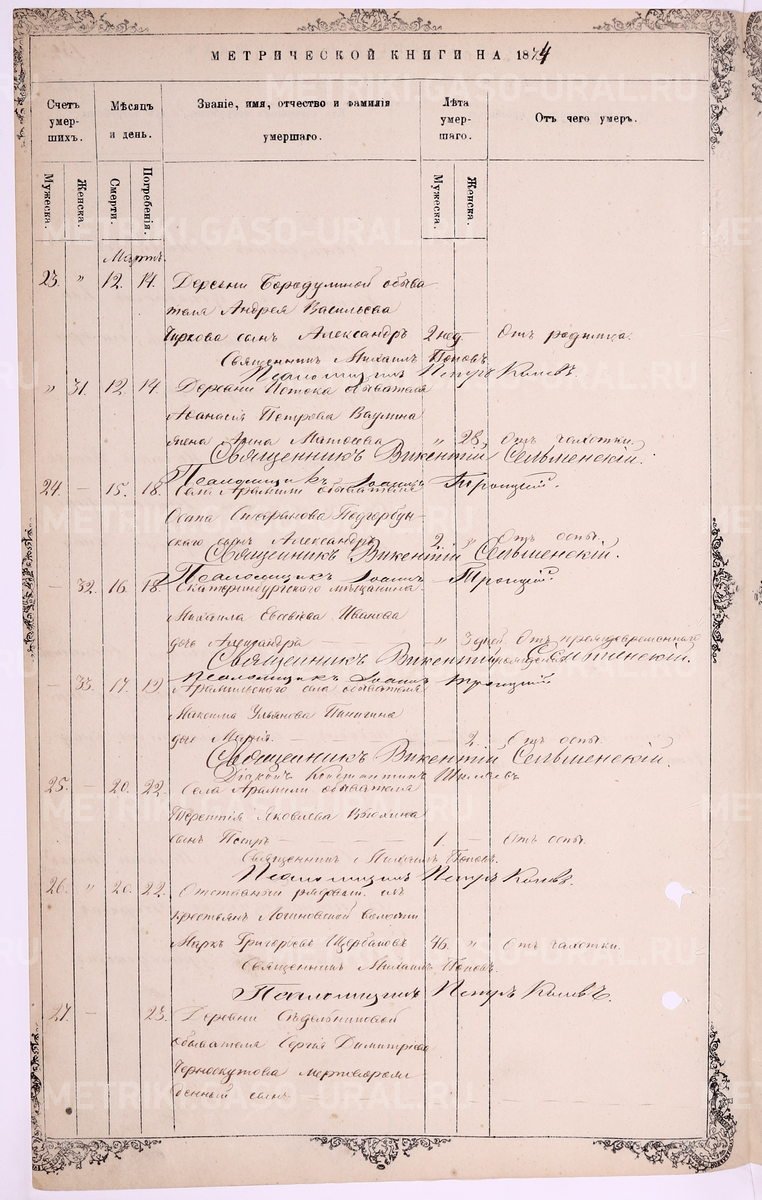 МЕТРИЧЕСКОЙ КНИГИ НА 1874
Счетъ умершихъ.
Мѣсяцъ и день.
Званіе, имя, отчество и фамилія умершаго.
Лѣта умершаго.
Отъ чего умеръ.
Мужеска.
Женска.
Смерти.
Погребенія.
Мужеска.
Женска.
Мартъ.
23. " 12. 14. Деревни Бородулиной обыва
теля Андрея Васильева
Чиркова сынъ Александръ 2 нед. Отъ родимца.
Священникъ Михаилъ Поповъ.
Псаломщикъ Петръ
" 31. 12. 14. Деревни обывателя
Аѳанасія Петрова
жена Анна " 28, Отъ чахотки.
Священникъ Викентій Сельменскій.
Псаломщикъ Іоаннъ Троицкій.
24. — 15. 18. Села Арамили обывателя
Осипа Стефанова Подгорбун-
скаго сынъ Александръ 2. " Отъ оспы.
Священникъ Викентій Сельменскій.
Псаломщикъ Іоаннъ Троицкій.
— 32. 16. 18. Екатеринбургскаго мѣщанина
Михаила Иванова
дочь Александра " 3 дней. Отъ преждевременнаго
Священникъ Викентій Сельменскій.
Псаломщикъ Іоаннъ Троицкій.
— 33. 17. 19 Арамильскаго села обывателя
Максима Ульянова Паначина
дочь Марія. 2. Отъ оспы.
Священникъ Викентій Сельменскій.
Діаконъ Константинъ
25. — 20. 22. Села Арамили обывателя
Терентія Яковлева
сынъ Петръ 1. — Отъ оспы.
Священникъ Михаилъ Поповъ.
Псаломщикъ Петръ
26. " 20. 22. Отставной рядовой изъ
крестьянъ Логиновской волости
Маркъ Григорьевъ Щербаковъ 46. " Отъ чахотки.
Священникъ Михаилъ Поповъ.
Псаломщикъ Петръ
27. — 23. Деревни Сѣдельниковой
обывателя Сергія Димитріева
Черноскутова мертворож
денный сынъ